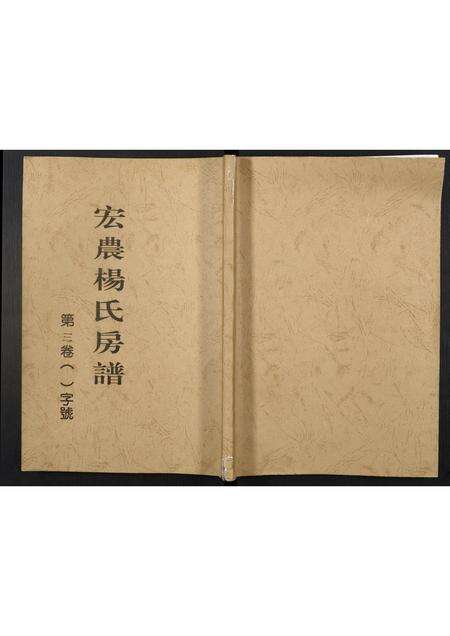 宏農楊氏房譜
第三卷( )字號